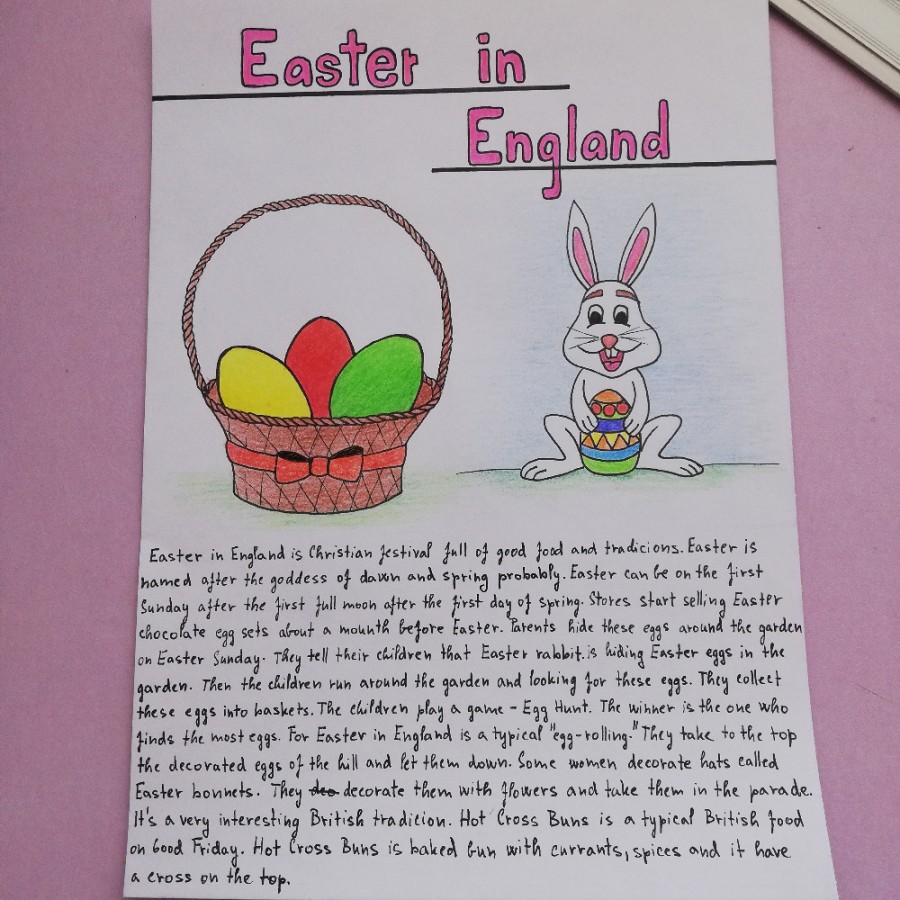 Easter in
England
Easter in England is Christian festival full of good food and tradicions. Easter is
named after the goddess of dawn and spring probably. Easter can be on the first
Sunday after the first full moon after the first day of spring. Stores start selling Easter
chocolate egg sets about a mounth before Easter. Parents hide these eggs around the garden
on Easter Sunday. They tell their children that Easter rabbit is hiding Easter eggs in the
garden. Then the children run around the garden and looking for these eggs. They collect
these eggs into baskets. The children play a game - Egg Hunt. The winner is the one who
finds the most eggs. For Easter in England is a typical "egg-rolling." They take to the top
the decorated eggs of the hill and let them down. Some women decorate hats called
Easter bonnets. They deo decorate them with flowers and take them in the parade.
It's a very interesting British tradicion. Hot Cross Buns is a typical British food
on Good Friday. Hot Cross Buns is baked bun with currants, spices and it have
a cross on the top.